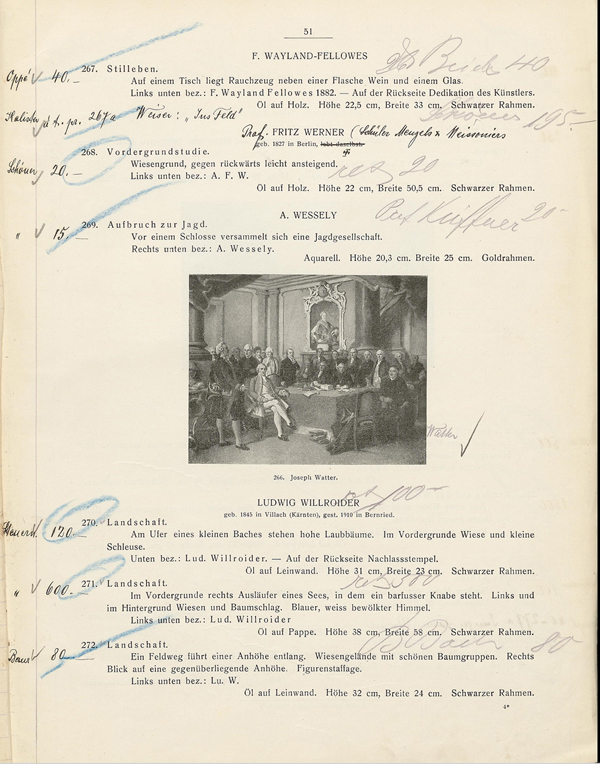 51
F. WAYLAND-FELLOWES
Oppé 40.— 267. Stilleben.
Auf einem Tisch liegt Rauchzeug neben einer Flasche Wein und einem Glas. 40
Links unten bez.: F. Wayland Fellowes 1882. — Auf der Rückseite Dedikation des Künstlers.
Öl auf Holz. Höhe 22,5 cm, Breite 33 cm. Schwarzer Rahmen.
267a Weiser: „Ins Feld" 195.—
Prof. FRITZ WERNER (Schüler Menzels & Meissoniers
geb. 1827 in Berlin, lebt daselbst.
268. Vordergrundstudie.
20.— Wiesengrund, gegen rückwärts leicht ansteigend. 20
Links unten bez.: A. F. W.
Öl auf Holz. Höhe 22 cm, Breite 50,5 cm. Schwarzer Rahmen.
A. WESSELY
20-
„ 15.— 269. Aufbruch zur Jagd.
Vor einem Schlosse versammelt sich eine Jagdgesellschaft.
Rechts unten bez.: A. Wessely.
Aquarell. Höhe 20,3 cm. Breite 25 cm. Goldrahmen.
Watter
266. Joseph Watter.
LUDWIG WILLROIDER
100-
geb. 1845 in Villach (Kärnten), gest. 1910 in Bernried.
120.— 270. Landschaft.
Am Ufer eines kleinen Baches stehen hohe Laubbäume. Im Vordergrunde Wiese und kleine
Schleuse.
Unten bez.: Lud. Willroider. — Auf der Rückseite Nachlassstempel.
Öl auf Leinwand. Höhe 31 cm, Breite 23 cm. Schwarzer Rahmen.
„ 600.— 271. Landschaft.
Im Vordergrund rechts Ausläufer eines Sees, in dem ein barfusser Knabe steht. Links und
im Hintergrund Wiesen und Baumschlag. Blauer, weiss bewölkter Himmel.
Links unten bez.: Lud. Willroider
Öl auf Pappe. Höhe 38 cm, Breite 58 cm. Schwarzer Rahmen.
80.— 272. Landschaft. 80-
Ein Feldweg führt einer Anhöhe entlang. Wiesengelände mit schönen Baumgruppen. Rechts
Blick auf eine gegenüberliegende Anhöhe. Figurenstaffage.
Links unten bez.: Lu. W.
Öl auf Leinwand. Höhe 32 cm, Breite 24 cm. Schwarzer Rahmen.
4*